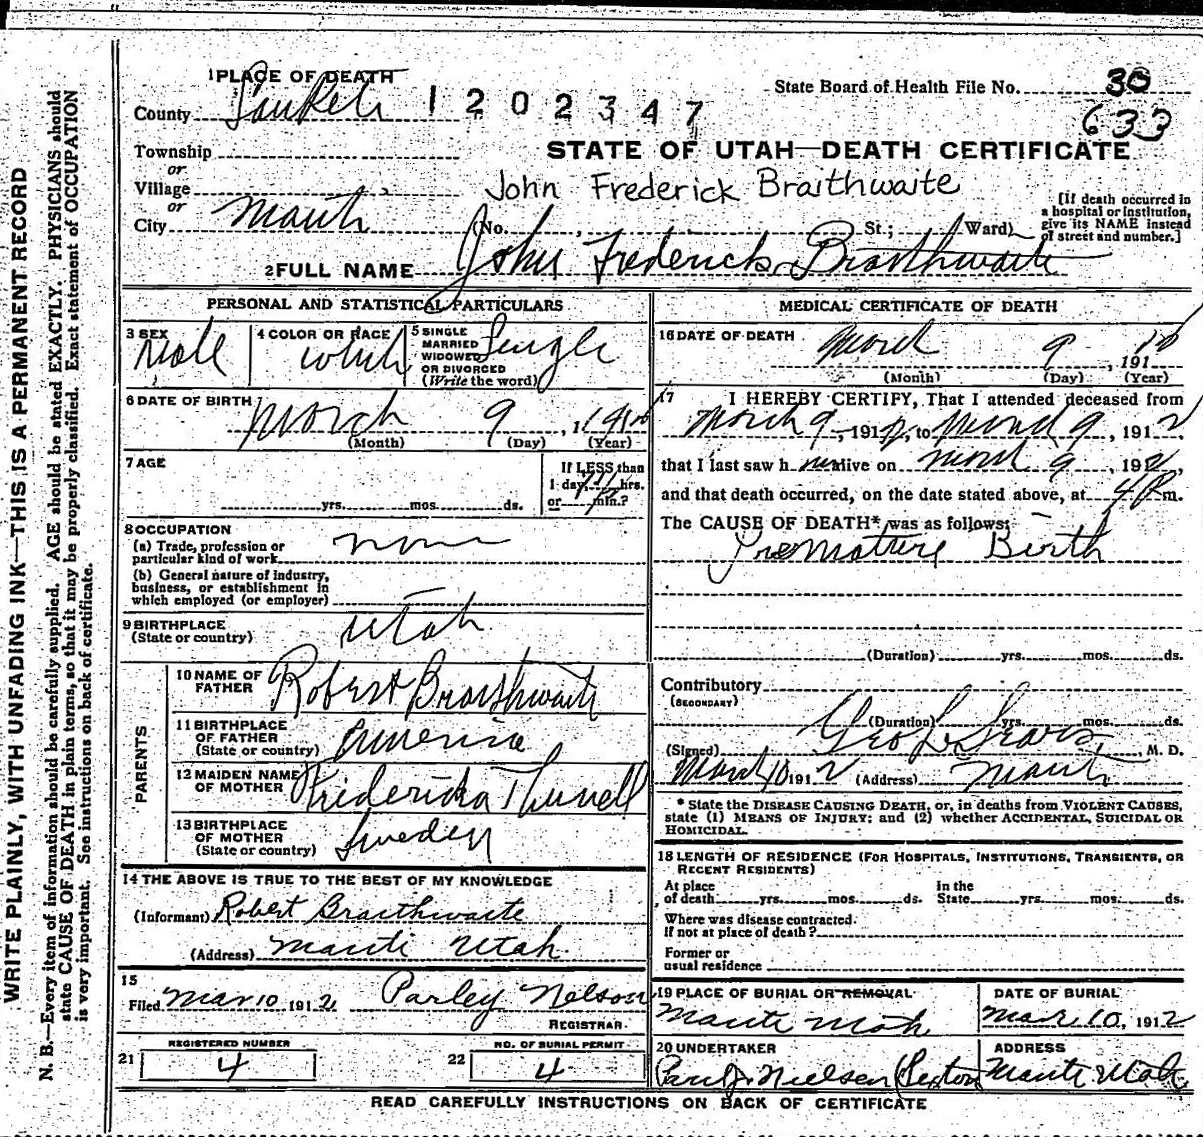 WRITE PLAINLY, WITH UNFADING INK—THIS IS A PERMANENT RECORD
N. B.—Every item of information should be carefully supplied. AGE should be stated EXACTLY. PHYSICIANS should
state CAUSE OF DEATH in plain terms, so that it may be properly classified. Exact statement of OCCUPATION
is very important. See instructions on back of certificate.
1 PLACE OF DEATH
County Sanpete 1202347
Township
or
Village
or
City Manti
State Board of Health File No. 30
633
STATE OF UTAH—DEATH CERTIFICATE
John Frederick Braithwaite
(No. , St.; Ward)
[If death occurred in
a hospital or institution,
give its NAME instead
of street and number.]
2 FULL NAME John Frederick Braithwaite
PERSONAL AND STATISTICAL PARTICULARS
3 SEX Male
4 COLOR OR RACE White
5 SINGLE
MARRIED
WIDOWED
OR DIVORCED
(Write the word) Single
6 DATE OF BIRTH March 9, 1912
(Month) (Day) (Year)
7 AGE
yrs. mos. ds.
If LESS than
1 day, hrs.
or min.?
8 OCCUPATION
(a) Trade, profession or
particular kind of work none
(b) General nature of industry,
business, or establishment in
which employed (or employer)
9 BIRTHPLACE
(State or country) Utah
PARENTS
10 NAME OF
FATHER Robert Braithwaite
11 BIRTHPLACE
OF FATHER
(State or country) America
12 MAIDEN NAME
OF MOTHER Fridericka Thunell
13 BIRTHPLACE
OF MOTHER
(State or country) Sweden
14 THE ABOVE IS TRUE TO THE BEST OF MY KNOWLEDGE
(Informant) Robert Braithwaite
(Address) Manti Utah
15
Filed Mar 10 1912 Parley Nelson
REGISTRAR.
21 REGISTERED NUMBER 4
22 NO. OF BURIAL PERMIT 4
MEDICAL CERTIFICATE OF DEATH
16 DATE OF DEATH
March 9, 1912
(Month) (Day) (Year)
17 I HEREBY CERTIFY, That I attended deceased from
March 9, 1912, to March 9, 1912,
that I last saw h im alive on March 9, 1912,
and that death occurred, on the date stated above, at 4 P m.
The CAUSE OF DEATH* was as follows:
Premature Birth
(Duration) yrs. mos. ds.
Contributory
(SECONDARY)
(Duration) yrs. mos. ds.
(Signed) Geo L Sears, M. D.
March 10 1912 (Address) Manti
* State the DISEASE CAUSING DEATH, or, in deaths from VIOLENT CAUSES,
state (1) MEANS OF INJURY; and (2) whether ACCIDENTAL, SUICIDAL OR
HOMICIDAL.
18 LENGTH OF RESIDENCE (FOR HOSPITALS, INSTITUTIONS, TRANSIENTS, OR
RECENT RESIDENTS)
At place
of death yrs. mos. ds.
In the
State yrs. mos. ds.
Where was disease contracted
if not at place of death?
Former or
usual residence
19 PLACE OF BURIAL OR REMOVAL
Manti Utah
DATE OF BURIAL
Mar. 10, 1912
20 UNDERTAKER
Nielsen (Sexton
ADDRESS
Manti Utah
READ CAREFULLY INSTRUCTIONS ON BACK OF CERTIFICATE